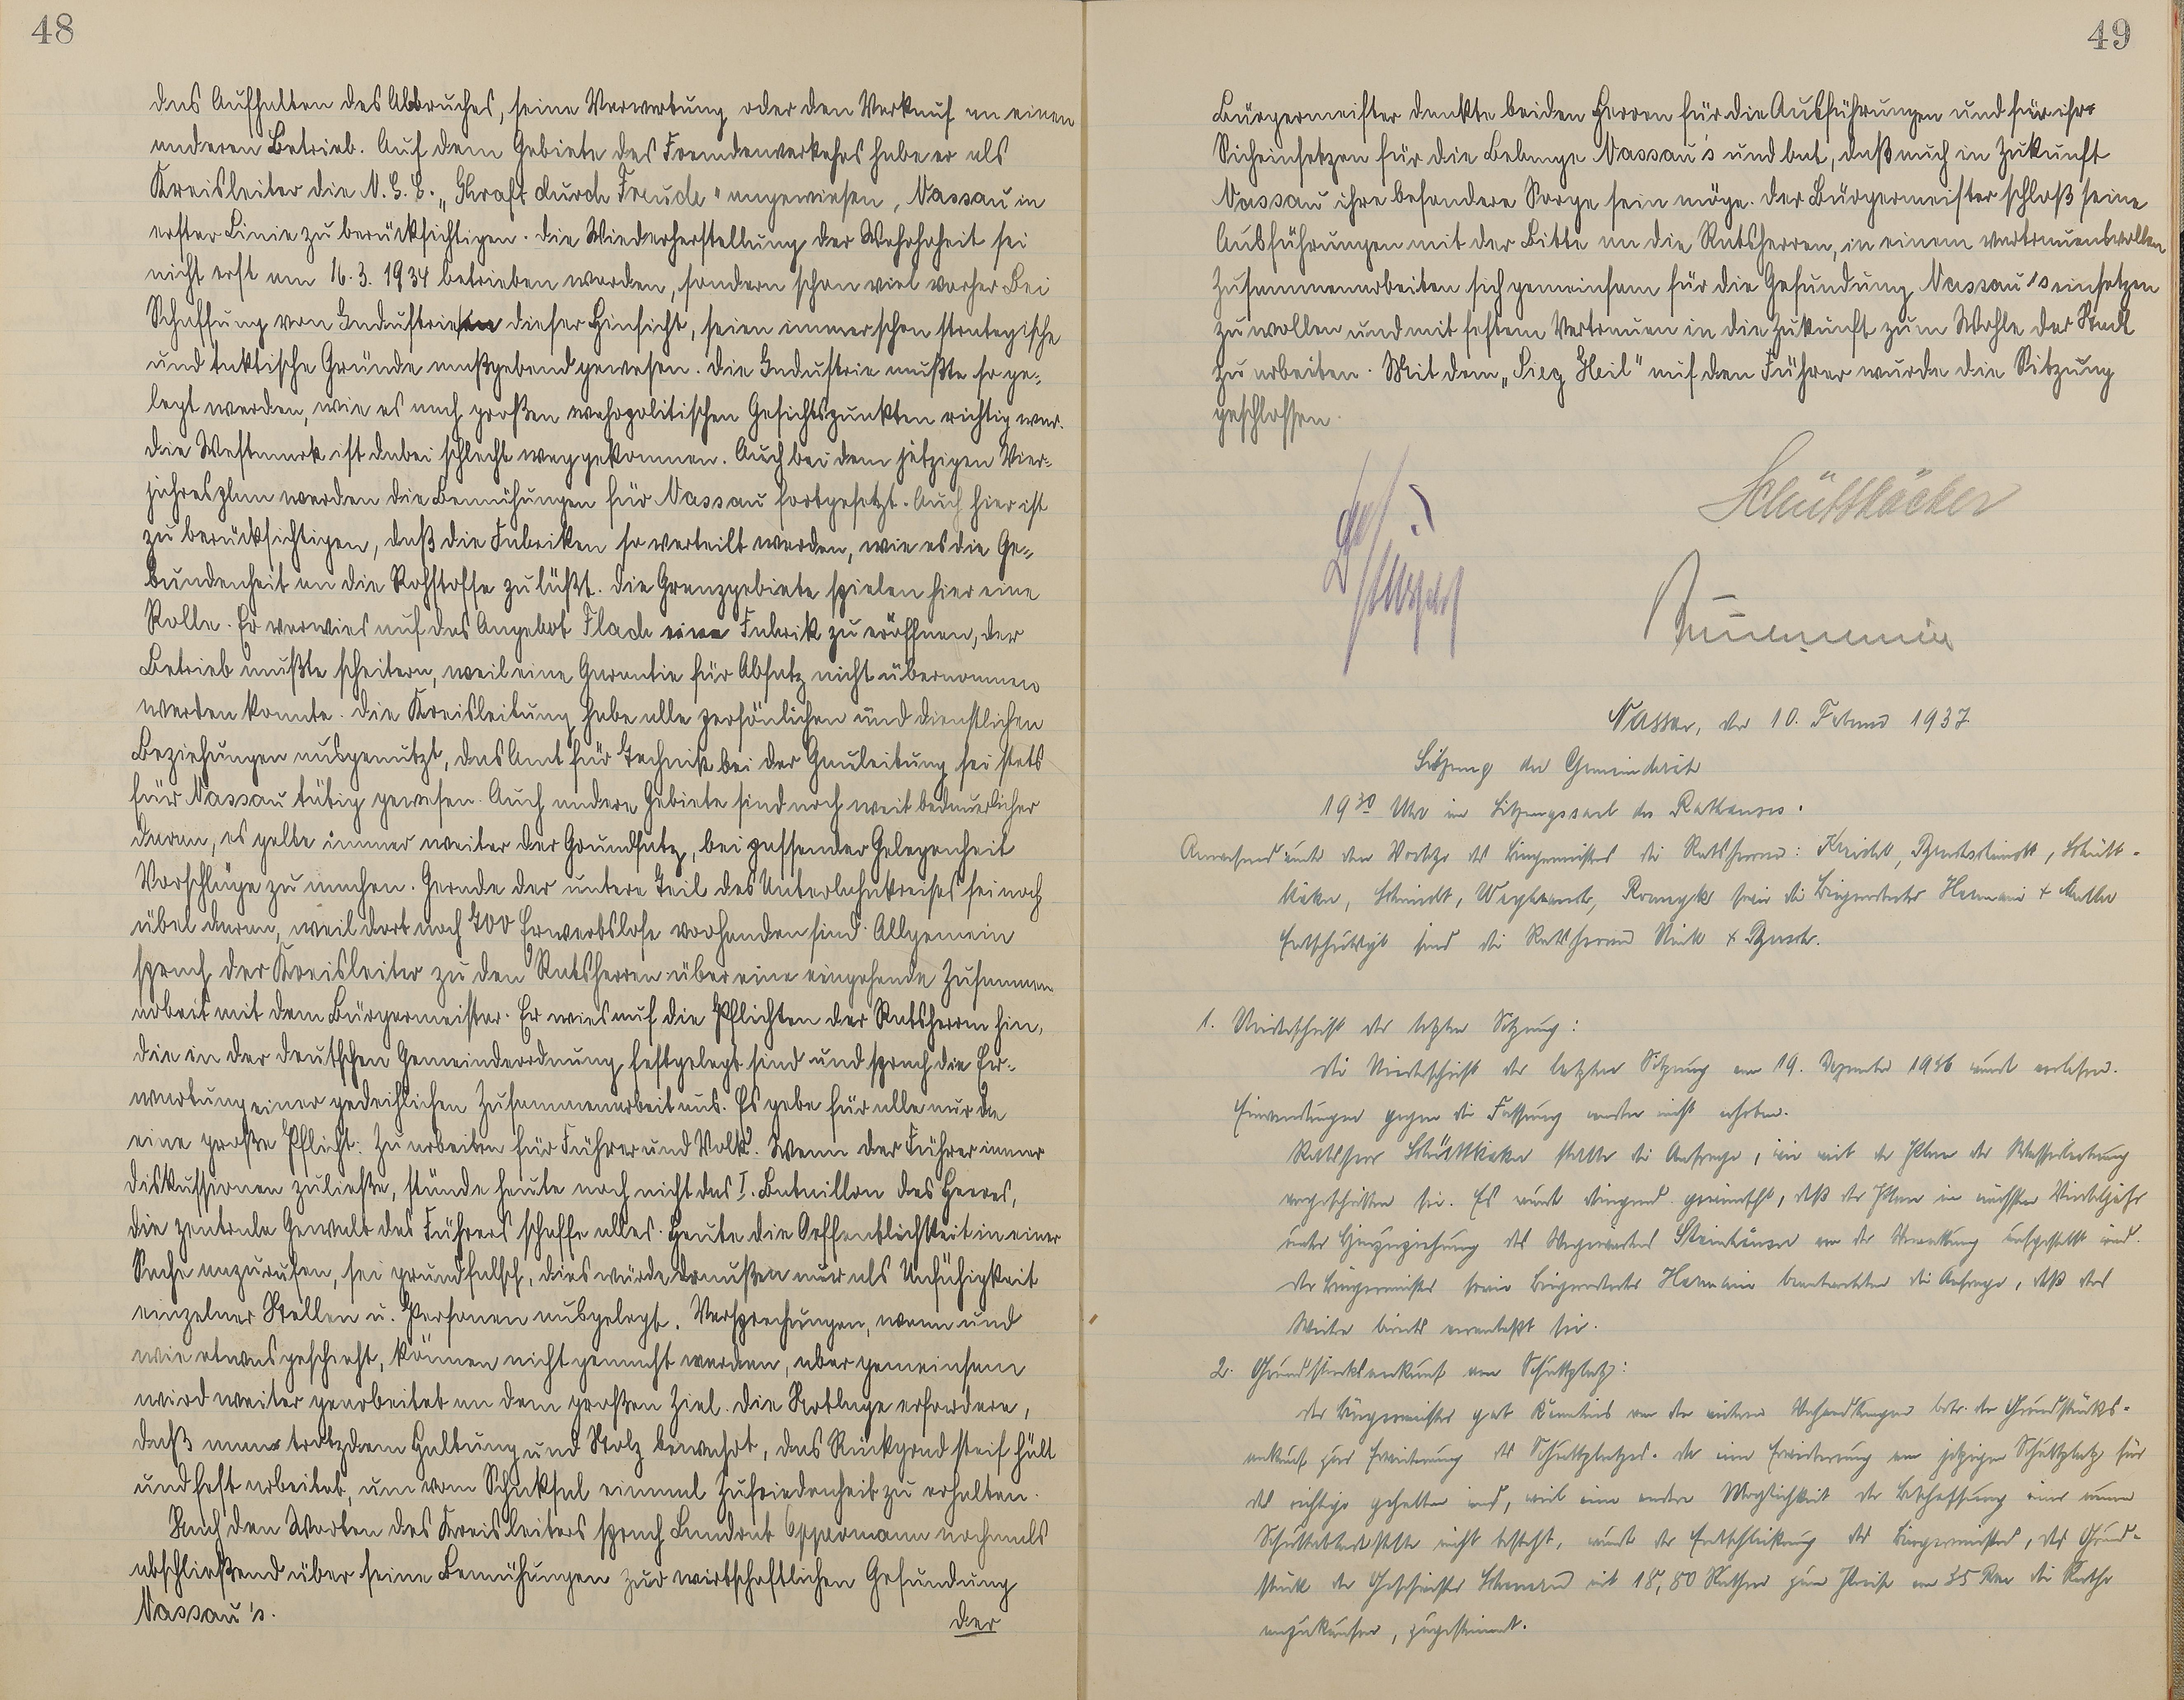 48
das Aufhalten des Abbruches, seine Verwertung oder den Verkauf an einen
anderen Betrieb. Auf dem Gebiete des Fremdenverkehrs habe er als
Kreisleiter die N.S.G. „Kraft durch Freude" angewiesen, Nassau in
erster Linie zu berücksichtigen. Die Wiederherstellung der Wehrhoheit sei
nicht erst am 16.3.1934 betrieben worden, sondern schon viel vorher Bei
Schaffung von Industrie in dieser Hinsicht, seien immer schon strategische
und taktische Gründe maßgebend gewesen. Die Industrie mußte so ge-
legt werden, wie es nach großen wehrpolitischen Gesichtspunkten richtig war.
Die Westmark ist dabei schlecht weggekommen. Auch bei dem jetzigen Vier-
jahresplan werden die Bemühungen für Nassau fortgesetzt. Auch hier ist
zu berücksichtigen, daß die Fabriken so verteilt werden, wie es die Ge-
bundenheit an die Rohstoffe zuläßt. Die Grenzgebiete spielen hier eine
Rolle. Er verwies auf das Angebot Flach eine Fabrik zu eröffnen, der
Betrieb mußte scheitern, weil eine Garantie für Absatz nicht übernommen
werden konnte. Die Kreisleitung habe alle persönlichen und dienstlichen
Beziehungen ausgenutzt, das Amt für Technik bei der Gauleitung sei stets
für Nassau tätig gewesen. Auch andere Gebiete sind noch weit bedauerlicher
daran, es gelte immer weiter der Grundsatz, bei passender Gelegenheit
Vorschläge zu machen. Gerade der untere Teil des Unterlahnkreises sei noch
übel daran, weil dort noch 700 Erwerbslose vorhanden sind. Allgemein
sprach der Kreisleiter zu den Ratsherren über eine eingehende Zusammen
arbeit mit dem Bürgermeister. Er wies auf die Pflichten der Ratsherren hin,
die in der deutschen Gemeindeordnung festgelegt sind und sprach die Er-
wartung einer gedeihlichen Zusammenarbeit aus. Es gebe für alle nur die
eine große Pflicht: Zu arbeiten für Führer und Volk. Wenn der Führer immer
Diskussionen zuließe, stünde heute noch nicht das I. Bataillon des Heeres,
die zentrale Gewalt des Führers schaffe alles. Heute die Oeffentlichkeit in einer
Sache anzurufen, sei grundfalsch, dies würde draußen nur als Unfähigkeit
einzelner Stellen u. Personen ausgelegt. Versprechungen, wann und
wie etwas geschieht, können nicht gemacht werden, aber gemeinsam
wird weiter gearbeitet an dem großen Ziel. Die Notlage erfordere,
daß man trotzdem Haltung und Stolz bewahrt, das Rückgrad steif hält
und fest arbeitet, um vom Schicksal einmal Zufriedenheit zu erhalten.
Nach den Worten des Kreisleiters sprach Landrat Oppermann nochmals
abschließend über seine Bemühungen zur wirtschaftlichen Gesundung
Nassau's.
Der
49
Bürgermeister dankte beiden Herren für die Ausführungen und für ihr
Sicheinsetzen für die Belange Nassau's und bat, daß auch in Zukunft
Nassau ihre besondere Sorge sein möge. Der Bürgermeister schloß seine
Ausführungen mit der Bitte an die Ratsherren, in einem vertrauensvollen
Zusammenarbeiten sich gemeinsam für die Gesundung Nassau's einsetzen
zu wollen und mit festem Vertrauen in die Zukunft zum Wohle der Stadt
zu arbeiten. Mit dem „Sieg Heil" auf den Führer wurde die Sitzung
geschlossen.
Schüttkäcker
Nassau, den 10. Februar 1937
Sitzung der Gemeinderäte
19 30 Uhr im Sitzungssaal des Rathauses.
Anwesend unter dem Vorsitze des Bürgermeisters die Ratsherren: Schütt-
käker, Schmidt, sowie die Beigeordneten Hermann +
Entschuldigt sind die Ratsherren
1. Niederschrift der letzten Sitzung:
Die Niederschrift der letzten Sitzung vom 19. Dezember 1936 wurde verlesen.
Einwendungen gegen die Fassung wurden nicht erhoben.
Ratsherr Schüttkäker stellte die Anfrage, wie weit der Plan der Wasserleitung
vorgeschritten sei. Es wurde dringend gewünscht, daß der Plan im nächsten Vierteljahr
unter Hinzuziehung des Steinhäuser von der Verwaltung aufgestellt wird.
Der Bürgermeister sowie Beigeordneter Hermann beantworteten die Anfrage, daß das
Weitere bereits veranlaßt sei.
2. Grundstücksankauf am Schuttplatz:
Der Bürgermeister gab Kenntnis von den weiteren Verhandlungen betr. den Grundstücks-
ankauf zur Erweiterung des Schuttplatzes. Da eine Erweiterung am jetzigen Schuttplatz für
das richtige gehalten wird, weil eine andere Möglichkeit der Beschaffung einer neuen
Schuttabladestelle nicht besteht, wurde der Entschließung des Bürgermeisters, das Grund-
stück der Geschwister mit 18,80 Ruthen zum Preise von 35 RM die Ruthe
anzukaufen, zugestimmt.